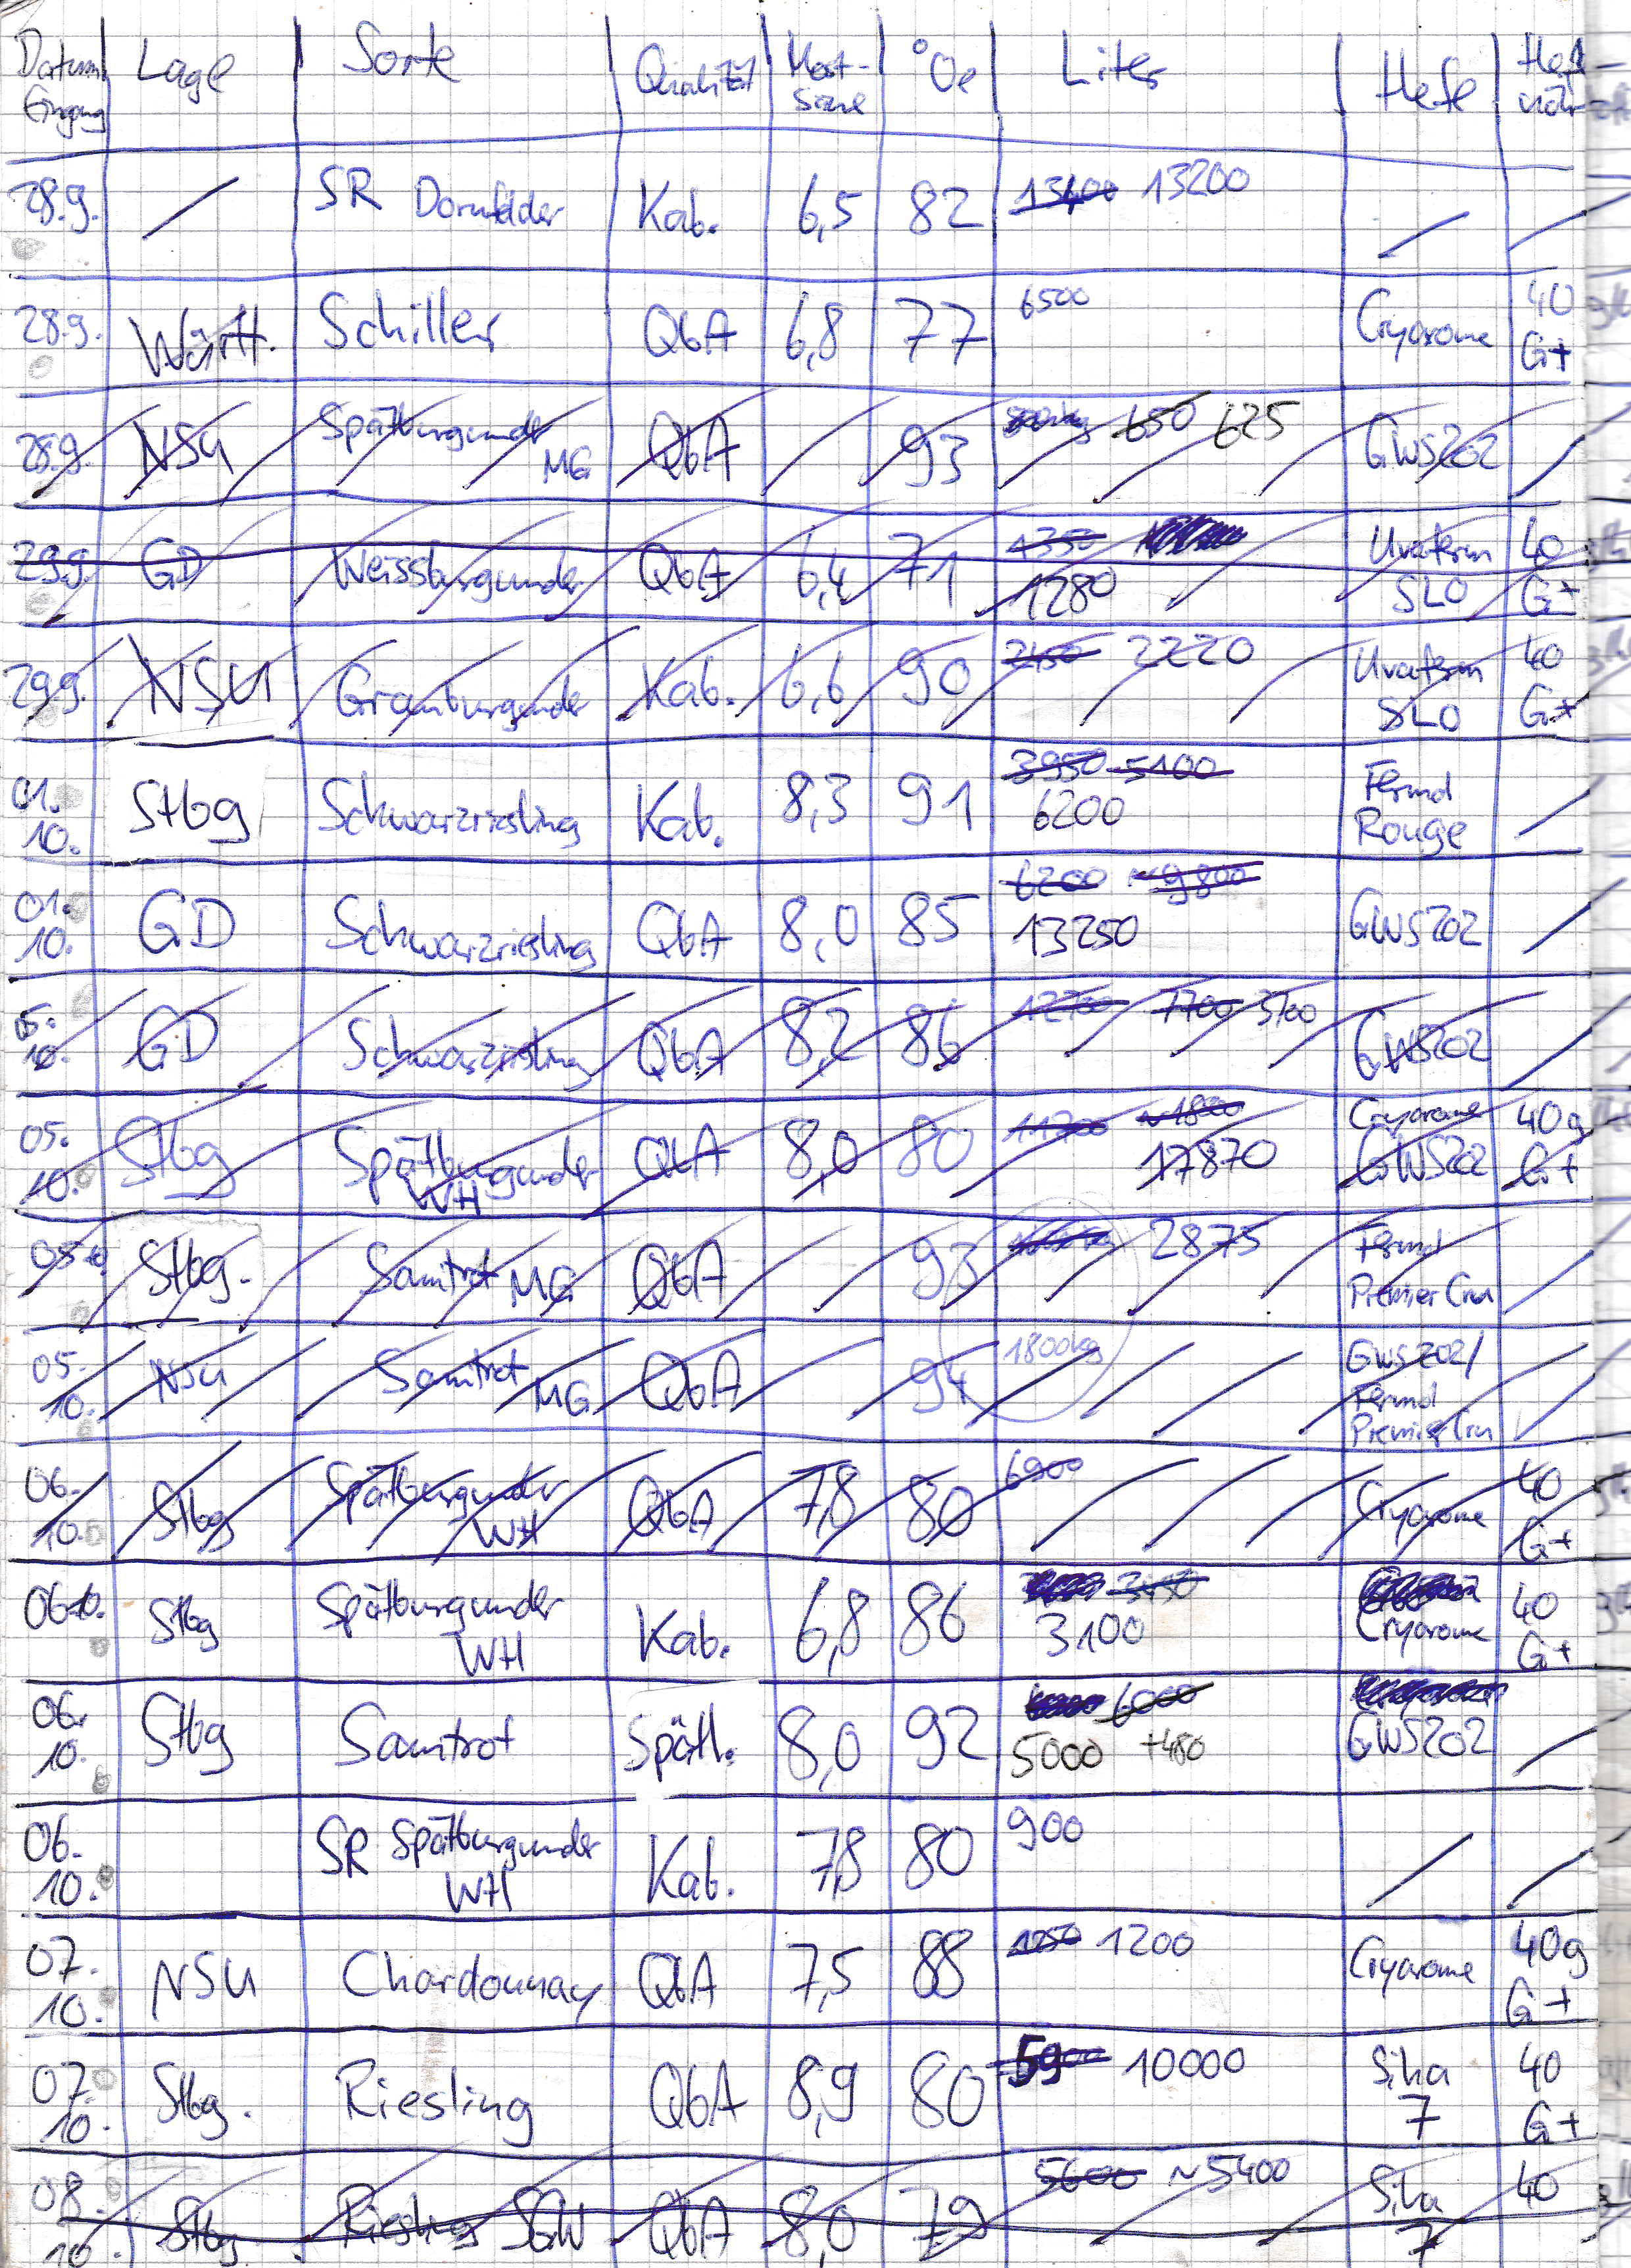 Datum Eingang Lage Sorte Qualität Most-säure °Oe Liter Hefe Hefe-nähr
28.9. / SR Dornfelder Kab. 6,5 82 13400 13200 / /
28.9. Württ. Schiller QbA 6,8 77 6500 Cryarome 40 G+
28.9. NSU Spätburgunder MG QbA / 93 650 625 GWS202 /
29.9. GD Weissburgunder QbA 6,4 71 1350 1280 Uvaferm SLO 40 G+
29.9. NSU Grauburgunder Kab. 6,6 90 2450 2220 Uvaferm SLO 40 G+
01.10. Stbg Schwarzriesling Kab. 8,3 91 3950 5100 6200 Fermol Rouge /
01.10. GD Schwarzriesling QbA 8,0 85 6200 ~9800 13250 GWS202 /
05.10. GD Schwarzriesling QbA 8,2 86 12700 7700 3100 GWS202 /
05.10. Stbg Spätburgunder WH QbA 8,0 80 11700 17870 Cryarome GWS202 40g G+
05.10. Stbg. Samtrot MG QbA 93 2875 Fermol Premier Cru /
05.10. NSU Samtrot MG QbA 94 1800kg GWS202/ Fermol Premier Cru
06.10. Stbg Spätburgunder WH QbA 7,8 80 6900 Cryarome 40 G+
06.10. Stbg Spätburgunder WH Kab. 6,8 86 3450 3100 Cryarome 40 G+
06.10. Stbg Samtrot Spätl. 8,0 92 6000 5000 +480 GWS202 /
06.10. SR Spätburgunder WH Kab. 7,8 80 900 / /
07.10. NSU Chardonnay QbA 7,5 88 1250 1200 Cryarome 40g G+
07.10. Stbg. Riesling QbA 8,9 80 5900 10000 Siha 7 40 G+
08.10. Stbg. Riesling SGW QbA 8,0 79 5600 ~5400 Siha 7 40